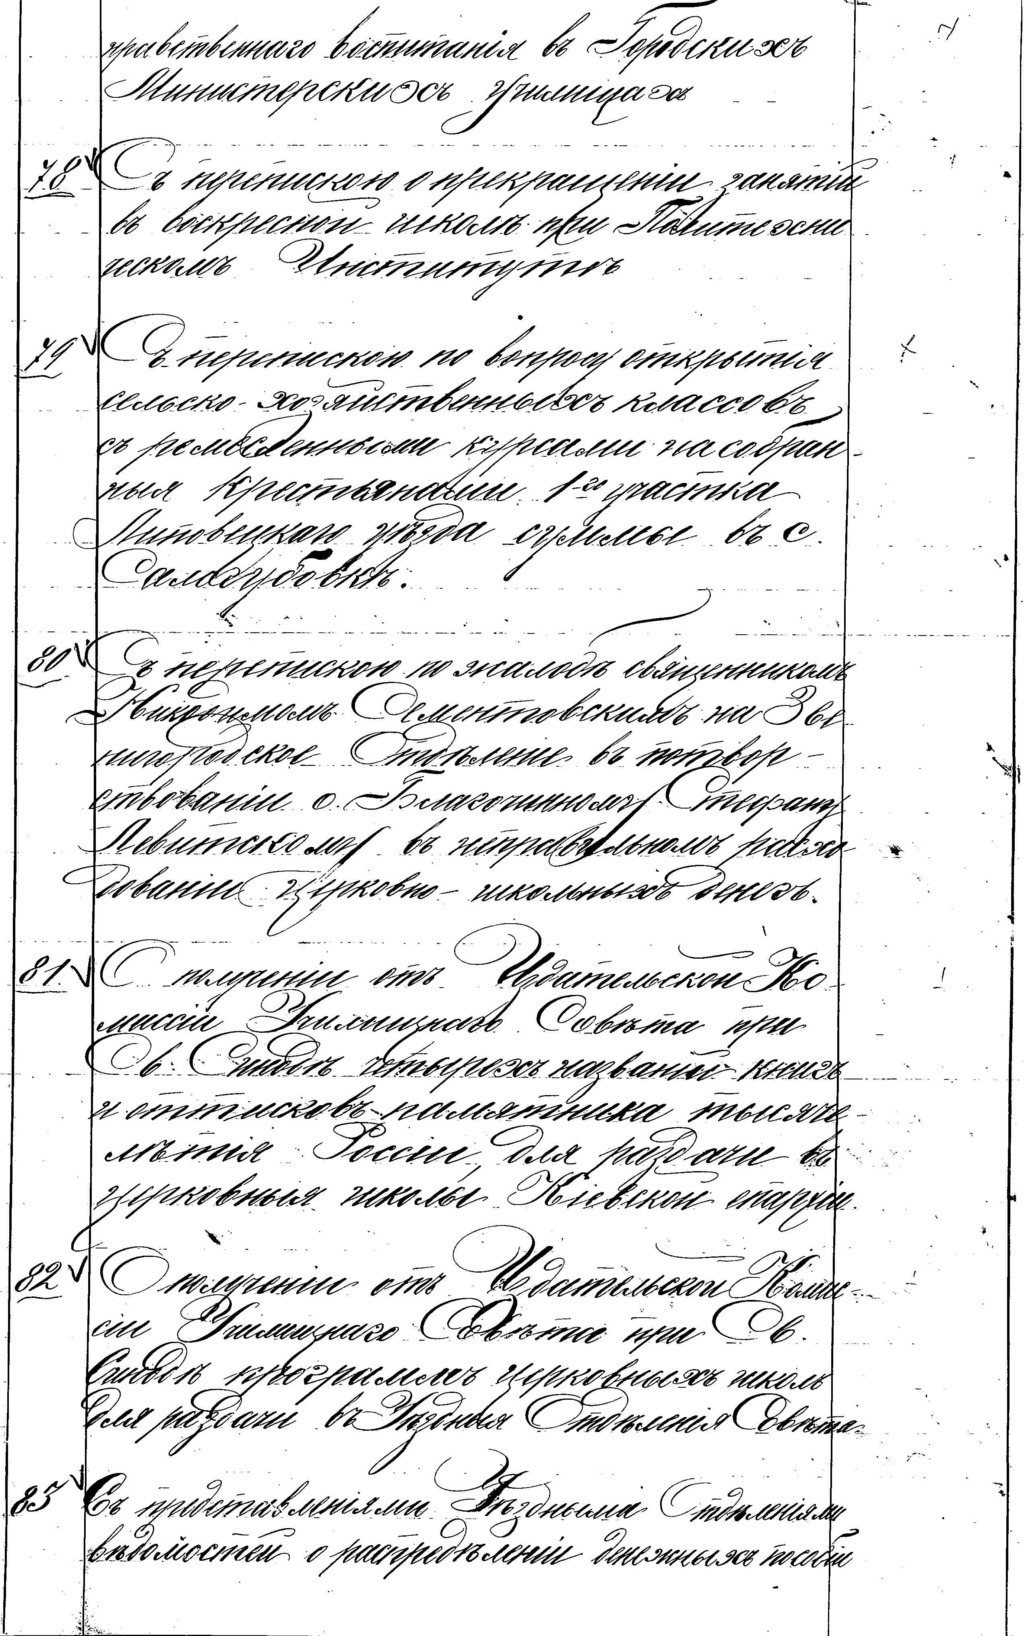 нравственнаго воспитанія въ Городскихъ
Министерскихъ училищахъ
78 Съ перепискою о прекращеніи занятій
въ воскресной школѣ при Политехни
ческомъ Институтѣ
79 Съ перепискою по вопросу открытія
сельско-хозяйственныхъ классовъ
съ ремесленными курсами на собран-
ныя крестьянами 1-го участка
Липовецкаго уѣзда суммы въ с.
Самгудовкѣ.
80 Съ перепискою по жалобѣ священникомъ
Сементовскимъ на Зве
нигородское Отдѣленіе въ потвор-
ствованіи о. Благочинному Стефану
Левитскому въ неправильномъ расхо
дованіи церковно-школьныхъ денегъ.
81. О полученіи отъ Издательской Ко-
миссіи Училищнаго Совѣта при
Св. Синодѣ четырехъ названій книгъ
и оттисковъ памятника тысяче-
лѣтія Россіи, для раздачи въ
церковныя школы Кіевской епархіи.
82 О полученіи отъ Издательской Комис-
сіи Училищнаго Совѣта при Св.
Синодѣ программъ церковныхъ школъ
для раздачи въ Уѣздныя Отдѣленія Совѣта.
83 Съ представленіями Уѣздными Отдѣленіями
вѣдомостей о распредѣленіи денежныхъ пособій